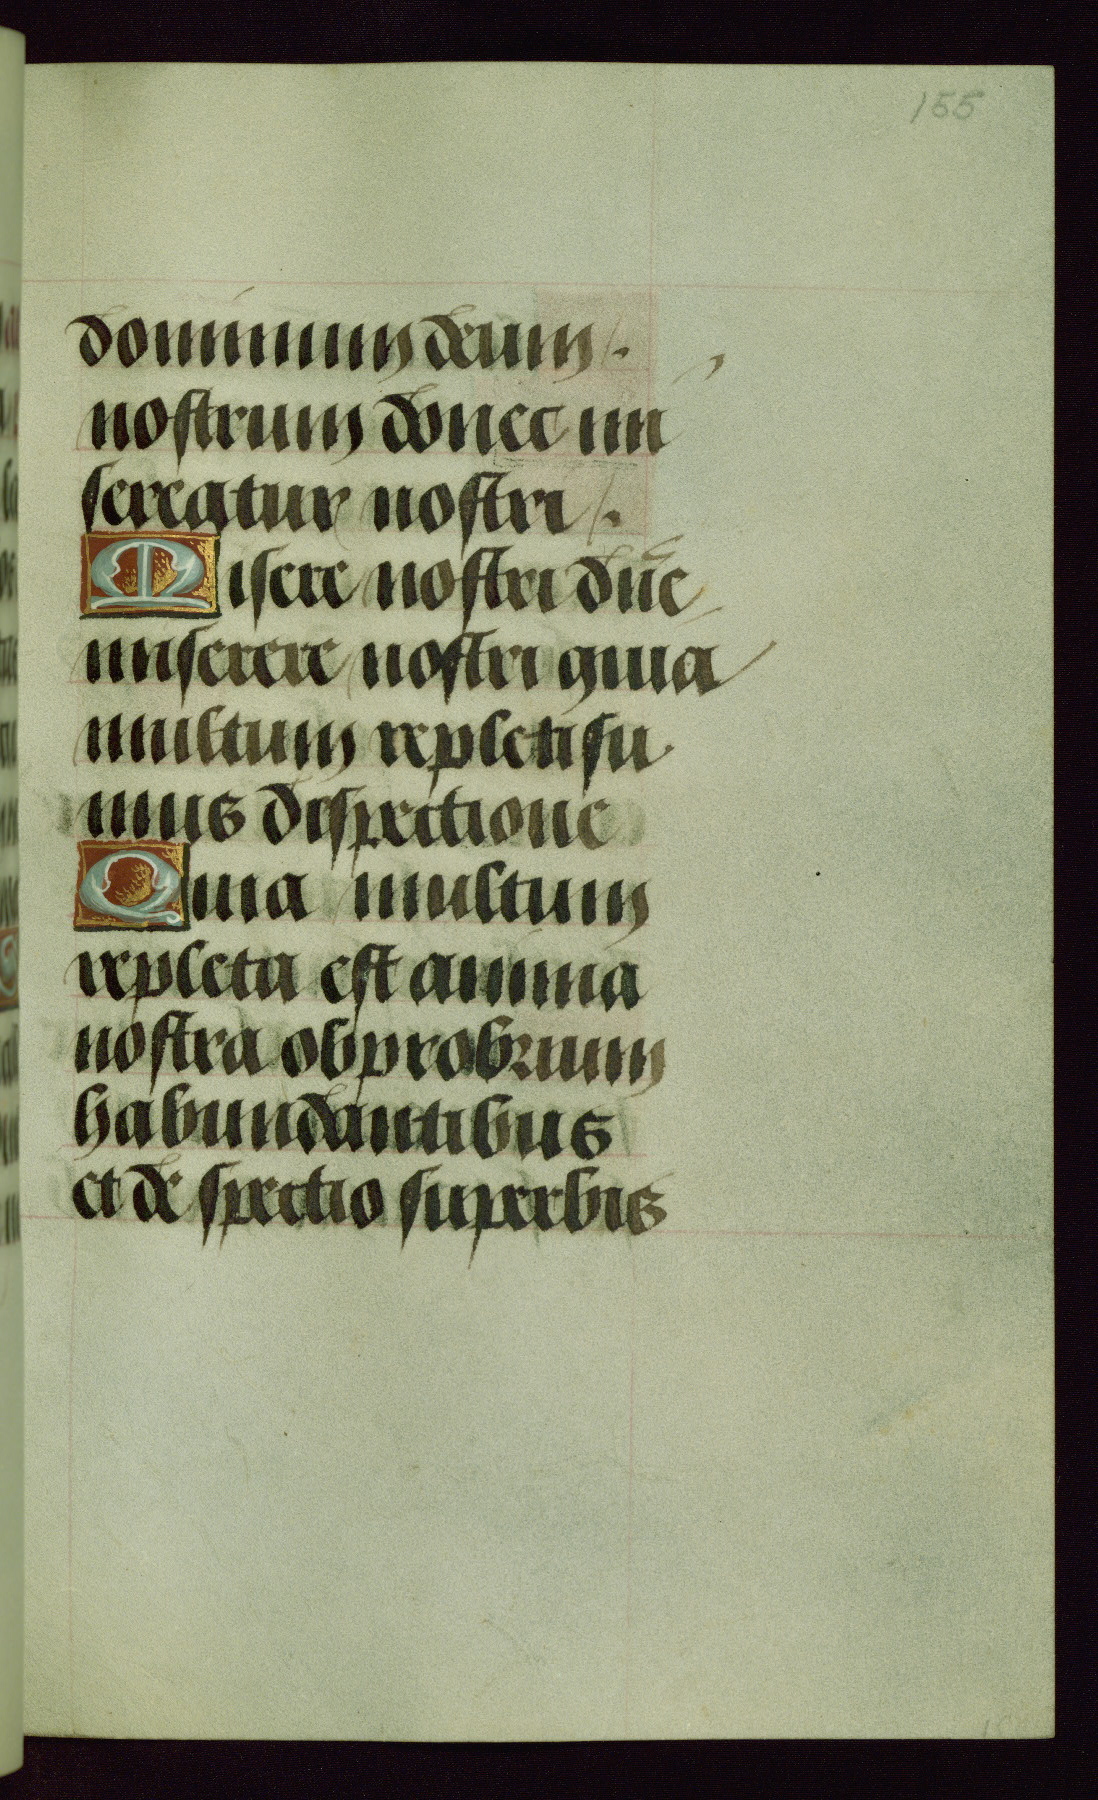 155
dominum deum /.
nostrum donec mi
sereatur nostri /.
Misere nostri dñe
miserere nostri quia
multum repleti su
mus dispectione
Quia multum
repleta est anima
nostra obprobrium
habundantibus
et de spectio superbis